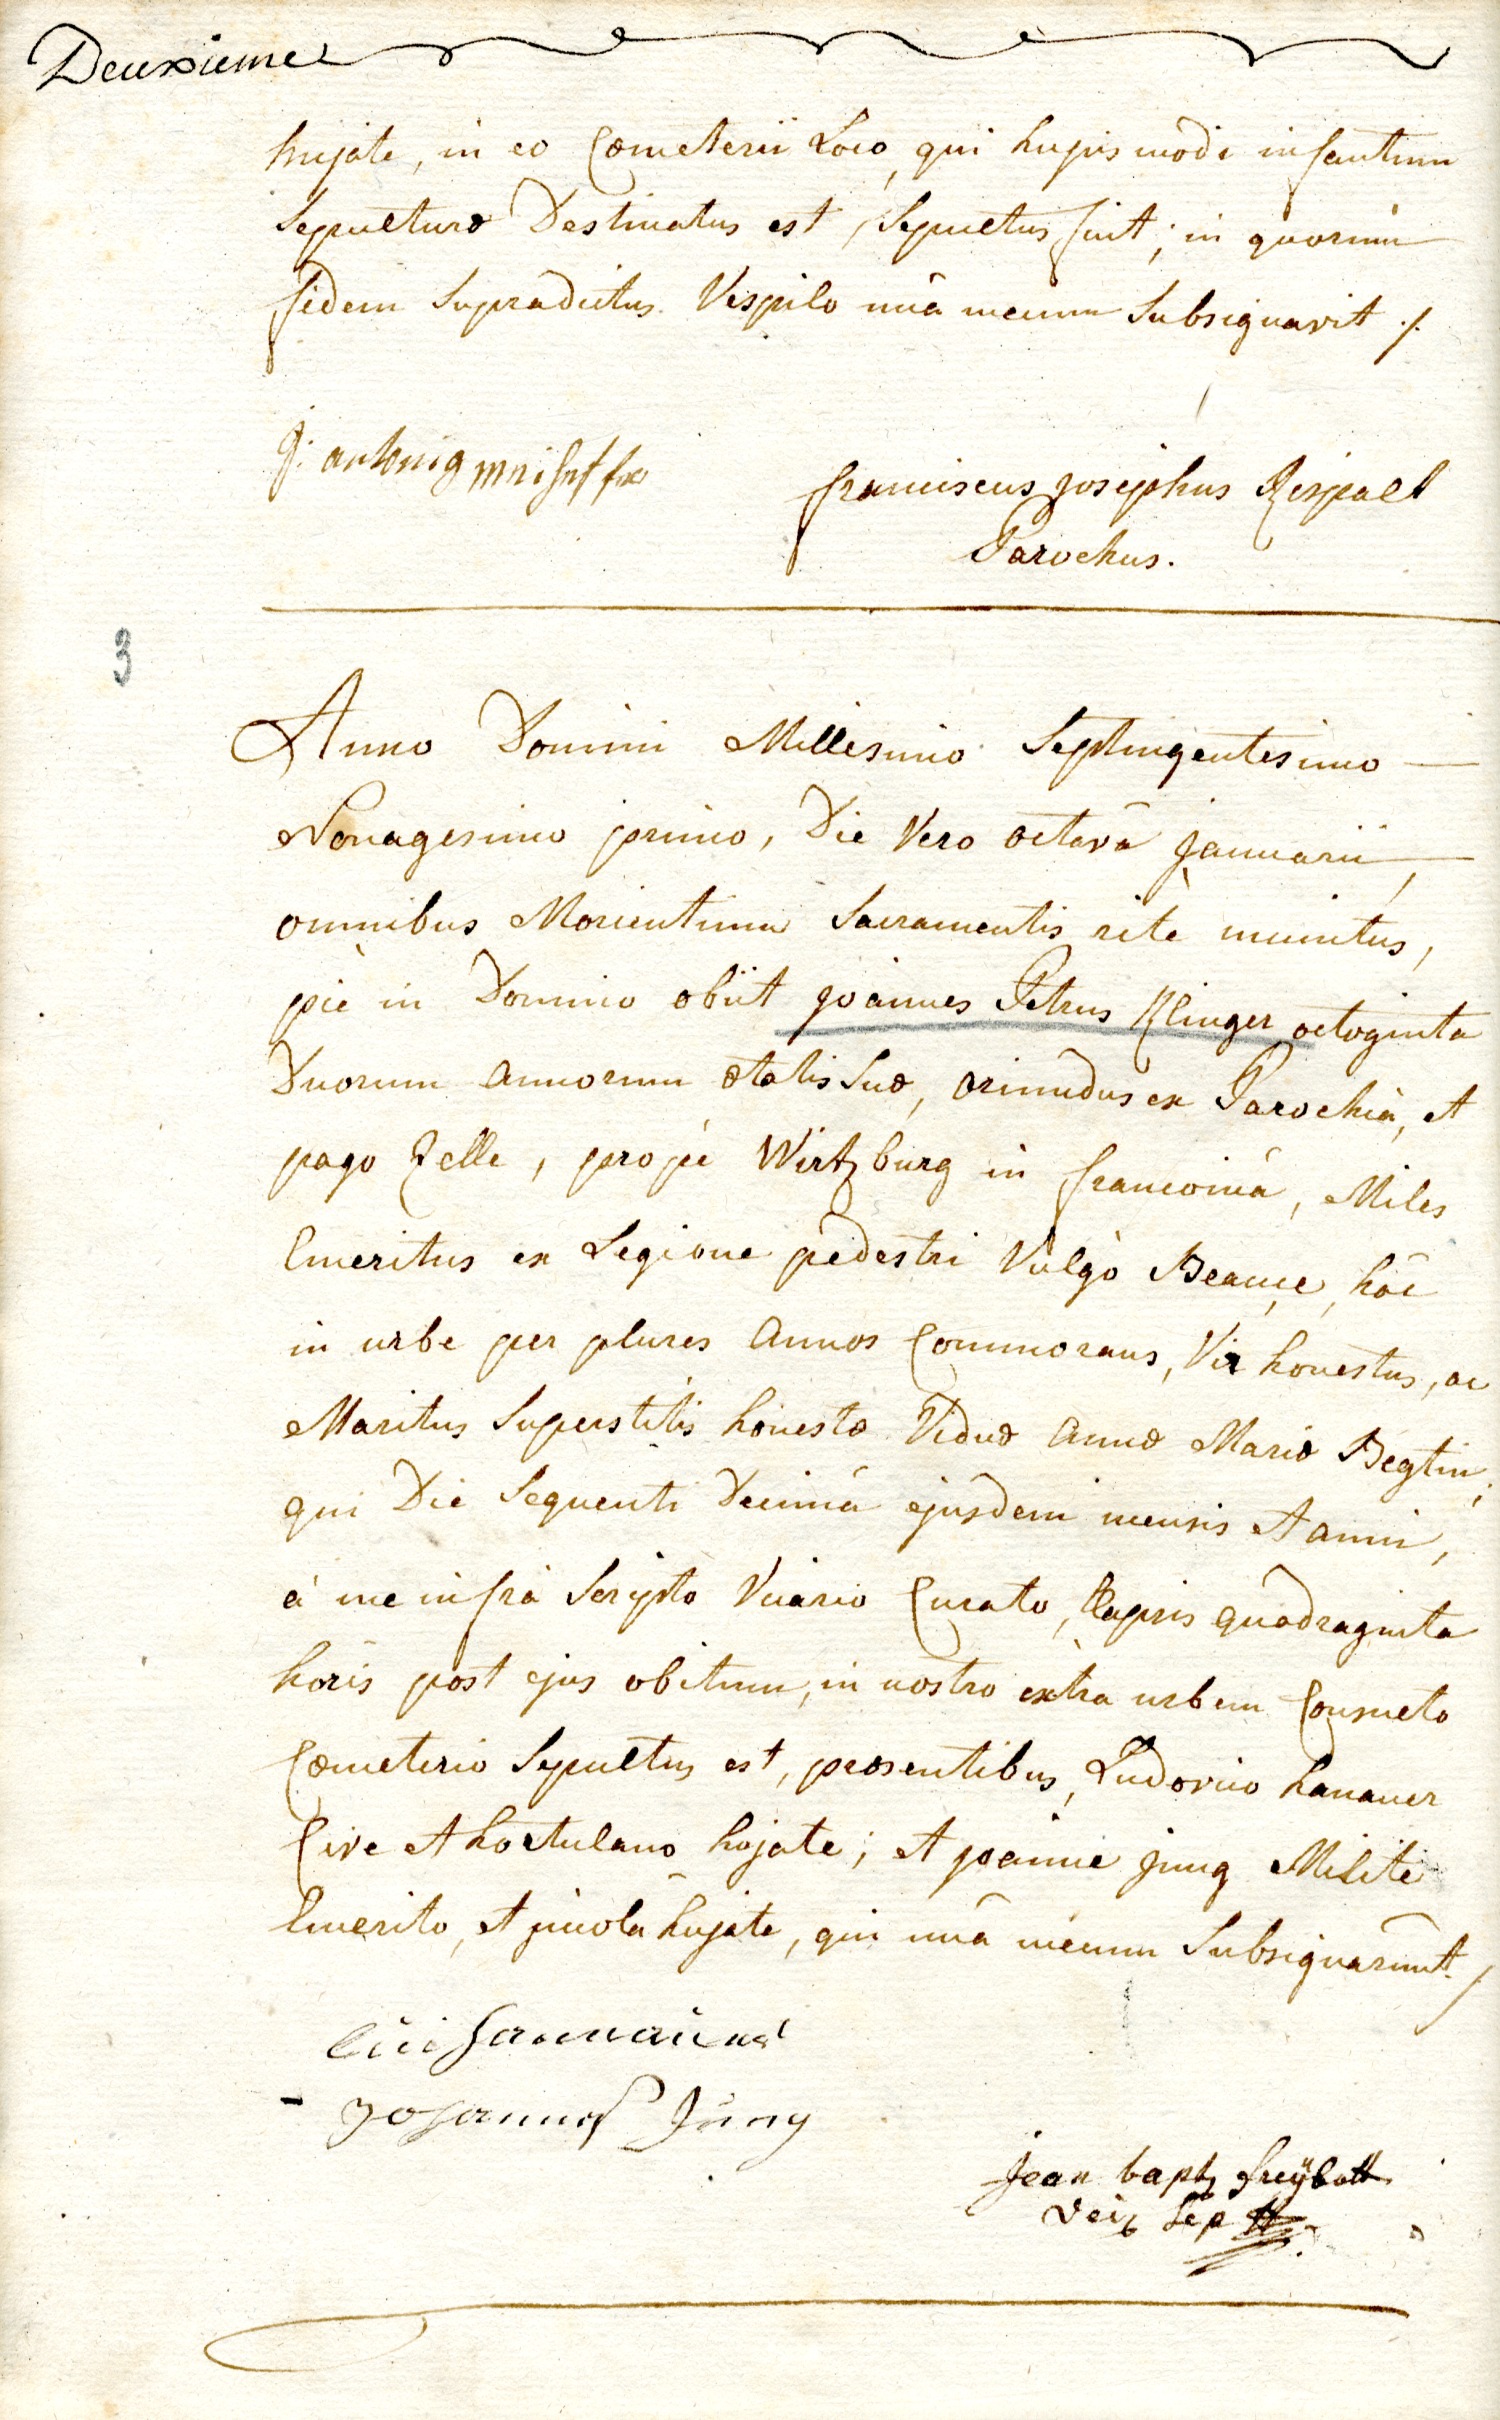 Deuxieme
hujate, in eo Cœmeterii Loco, qui hujus modi infantum
Sepulturæ Destinatus est, Sepultus fuit; in quorum
fidem Supradictus Vespilo unà mecum Subsignavit ./.
franciscus josephus Rispalt
Parochus.
3
Anno Domini Millesimo Septingentesimo
Nonagesimo primo, Die Vero octavâ januarii,
omnibus Morientium Sacramentis ritè munitus,
piè in Domino obiit joannes Petrus Klinger octoginta
Duorum annorum ætatis Suæ, oriundus ex Parochiâ, et
pago Zelle, propè Wirtzburg in franconiâ, Miles
Emeritus ex Legione pedestri Vulgò Beauce, hâc
in urbe per plures annos Commorans, Vir honestus, ac
Maritus Superstitis honestæ Viduæ annæ Mariæ Begtin;
qui Die Sequenti Decimâ ejusdem mensis et anni,
à me infrà Scripto Vicario Curato, Elapsis quadraginta
horis post ejus obitum, in nostro extra urbem Consueto
Cœmeterio Sepultus est, præsentibus, Ludovico hanauer
Cive et hortulano hujate; et joanne jung Milite
Emerito, et jncola hujate, qui unâ mecum Subsignârunt ./.
Johannes Jung
jean bapt freÿbott